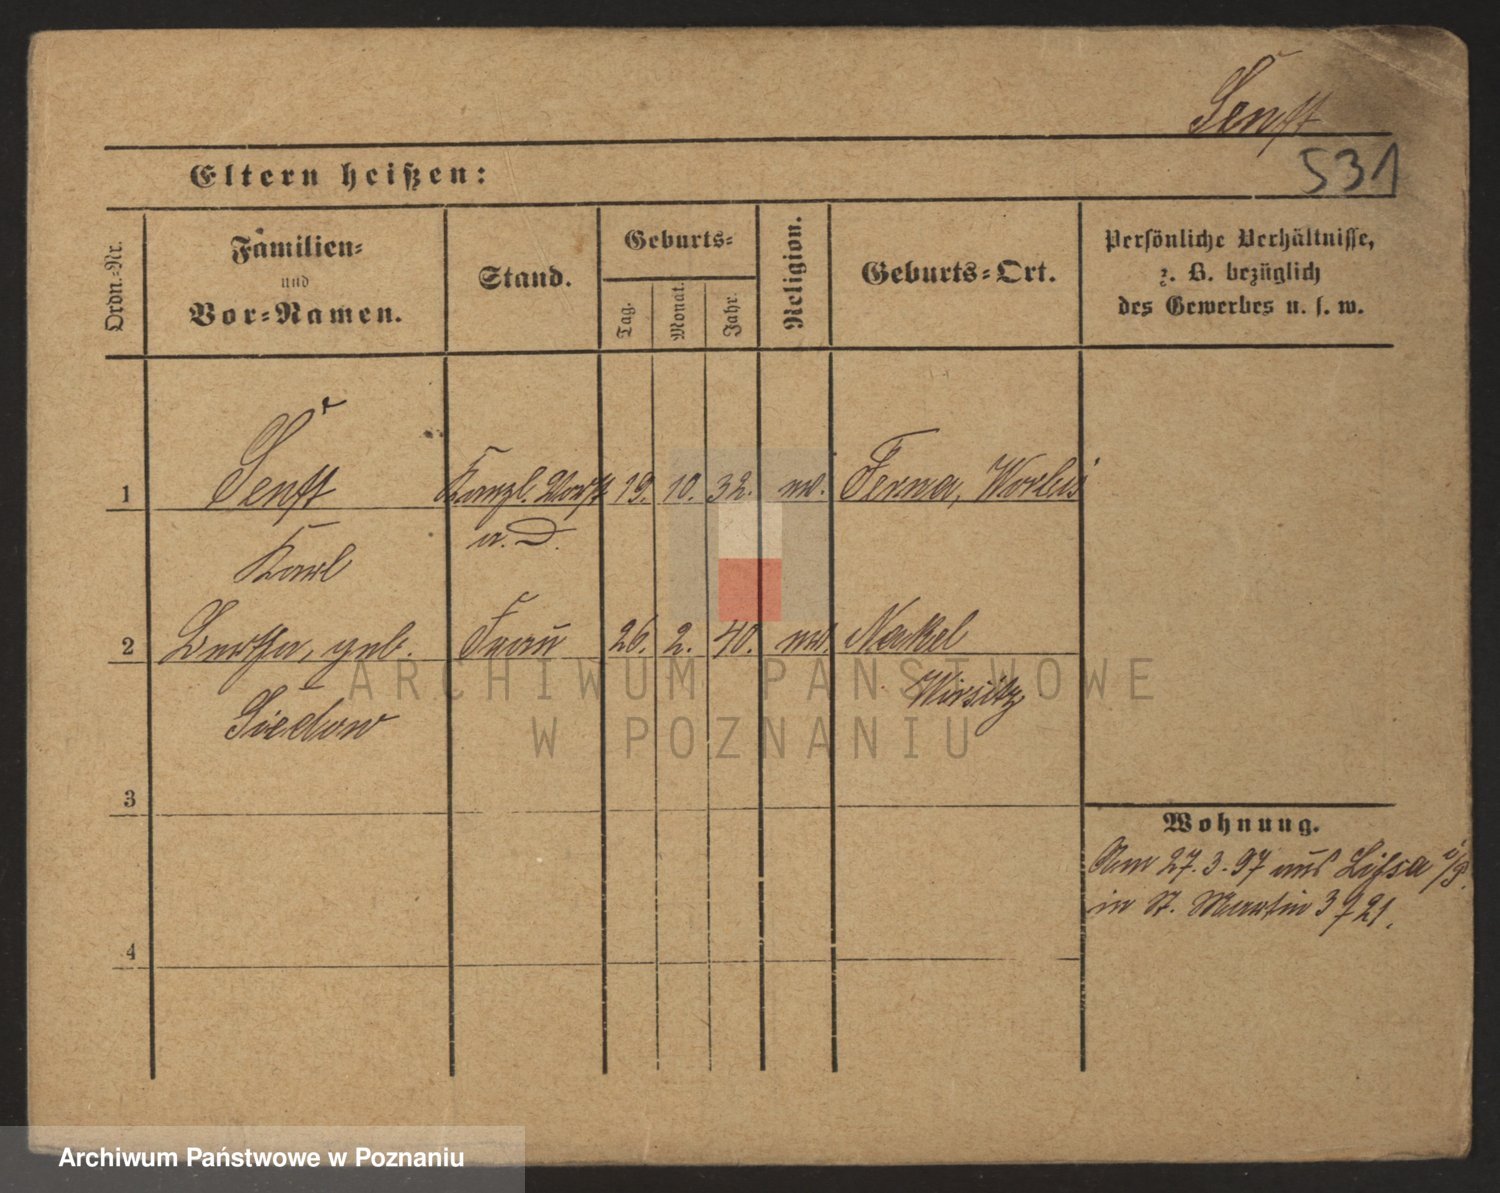 Senft
531
Eltern heißen:
Ordn.-Nr.
Familien-
und
Vor-Namen.
Stand.
Geburts-
Tag.
Monat.
Jahr.
Religion.
Geburts-Ort.
Persönliche Verhältnisse,
z. B. bezüglich
des Gewerbes u. s. w.
1 Senft Kanzl. Vorst. 19. 10. 32. ev. Ferna, Worbis
Karl a. D.
2 Bertha, geb. Frau 26. 2. 40. ev. Nakel
Siedow Wirsitz
3
4
Wohnung.
Am 27.3.97 aus Lissa i/P.
in St. Martin 3
ARCHIWUM PAŃSTWOWE
W POZNANIU
Archiwum Państwowe w Poznaniu